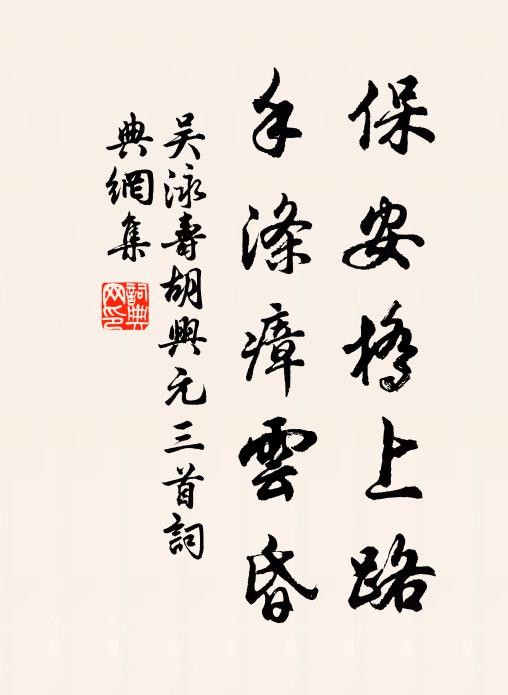 保安橋上路
手滌瘴雲昏
吴泳壽胡興元三首詞
典網集
詞典網印